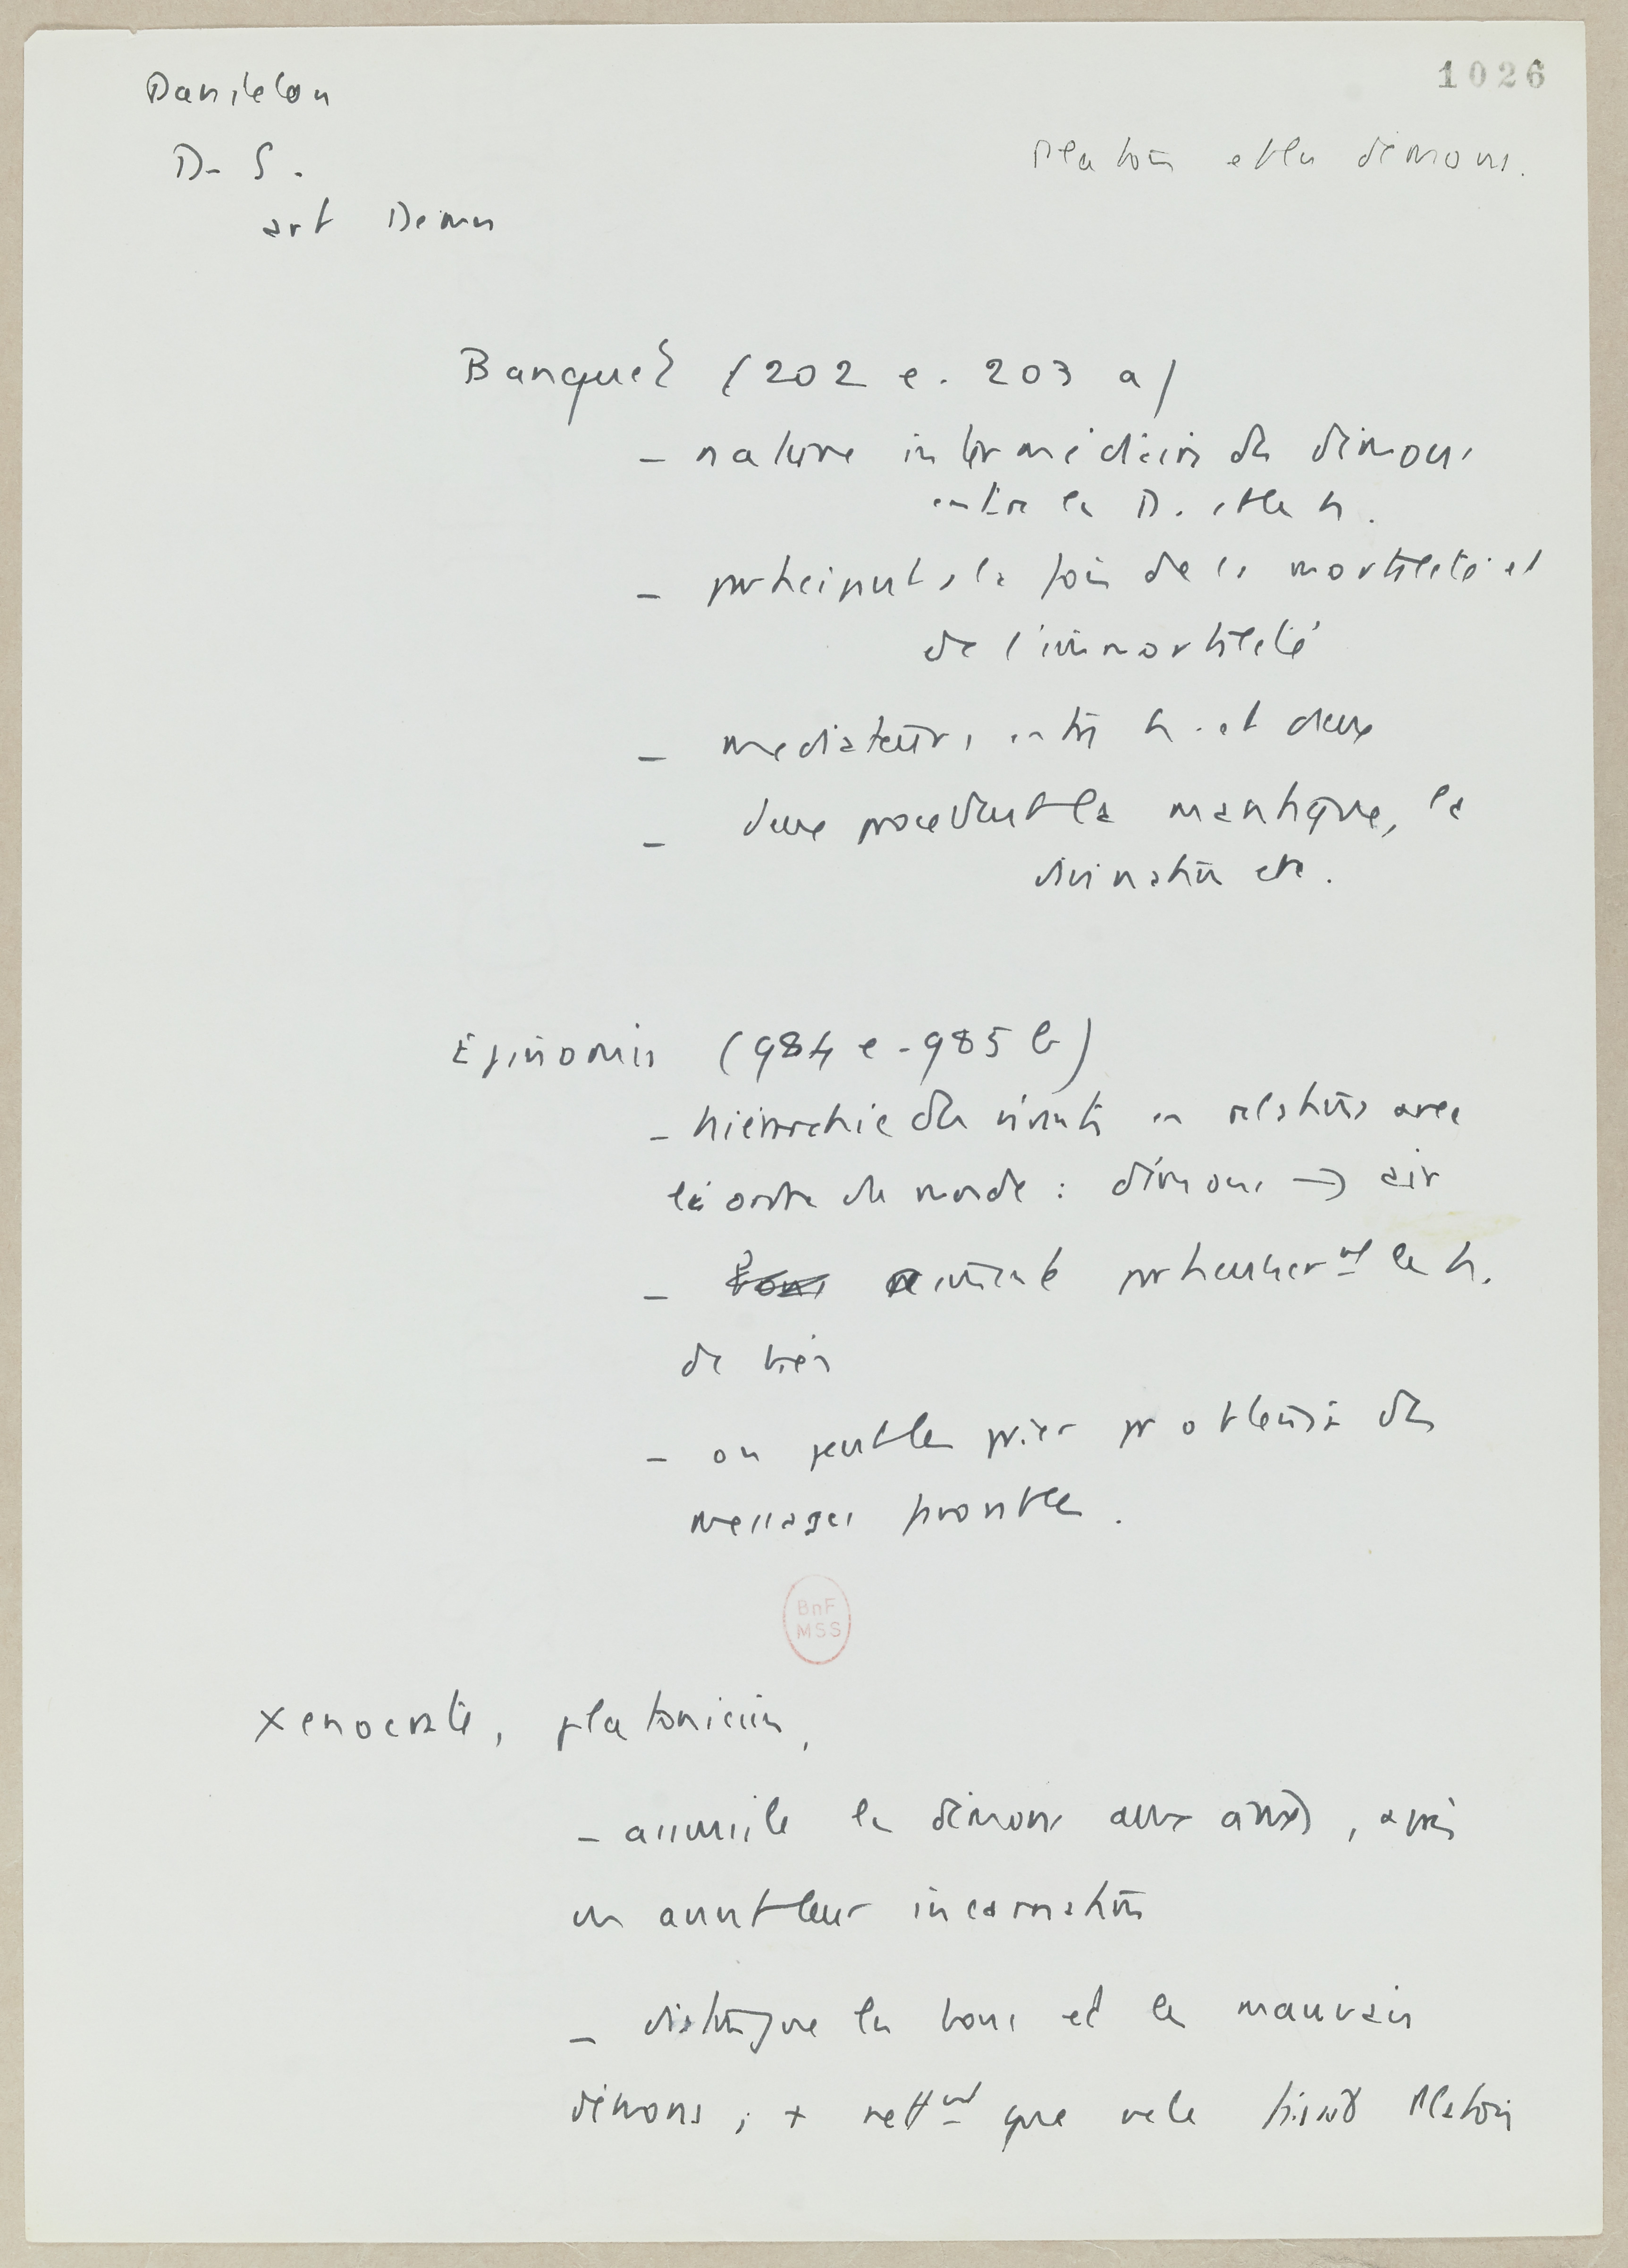 1026
Danielou
D. S.
art Démon
Platon et les démons.
Banquet (202 e. 203 a)
– nature intermédiaire des démons
entre les D. et les h.
– participent à la fois de la mortalité et
de l'immortalité
– mediateurs entre h. et dieux
– d'eux procèdent la mantique, la
divination etc.
Epinomis (984 e - 985 b)
– hiérarchie des vivants en relations avec
les ordres du monde : démons → air
– particulièrt les h.
de bien
– on peut les prier pr obtenir des
messages
BnF
MSS
Xenocrate, platonicien,
– assimile les démons aux âmes, après
ou avant leur incarnation
– distingue les bons et les mauvais
démons ; + nettt que ne le Platon